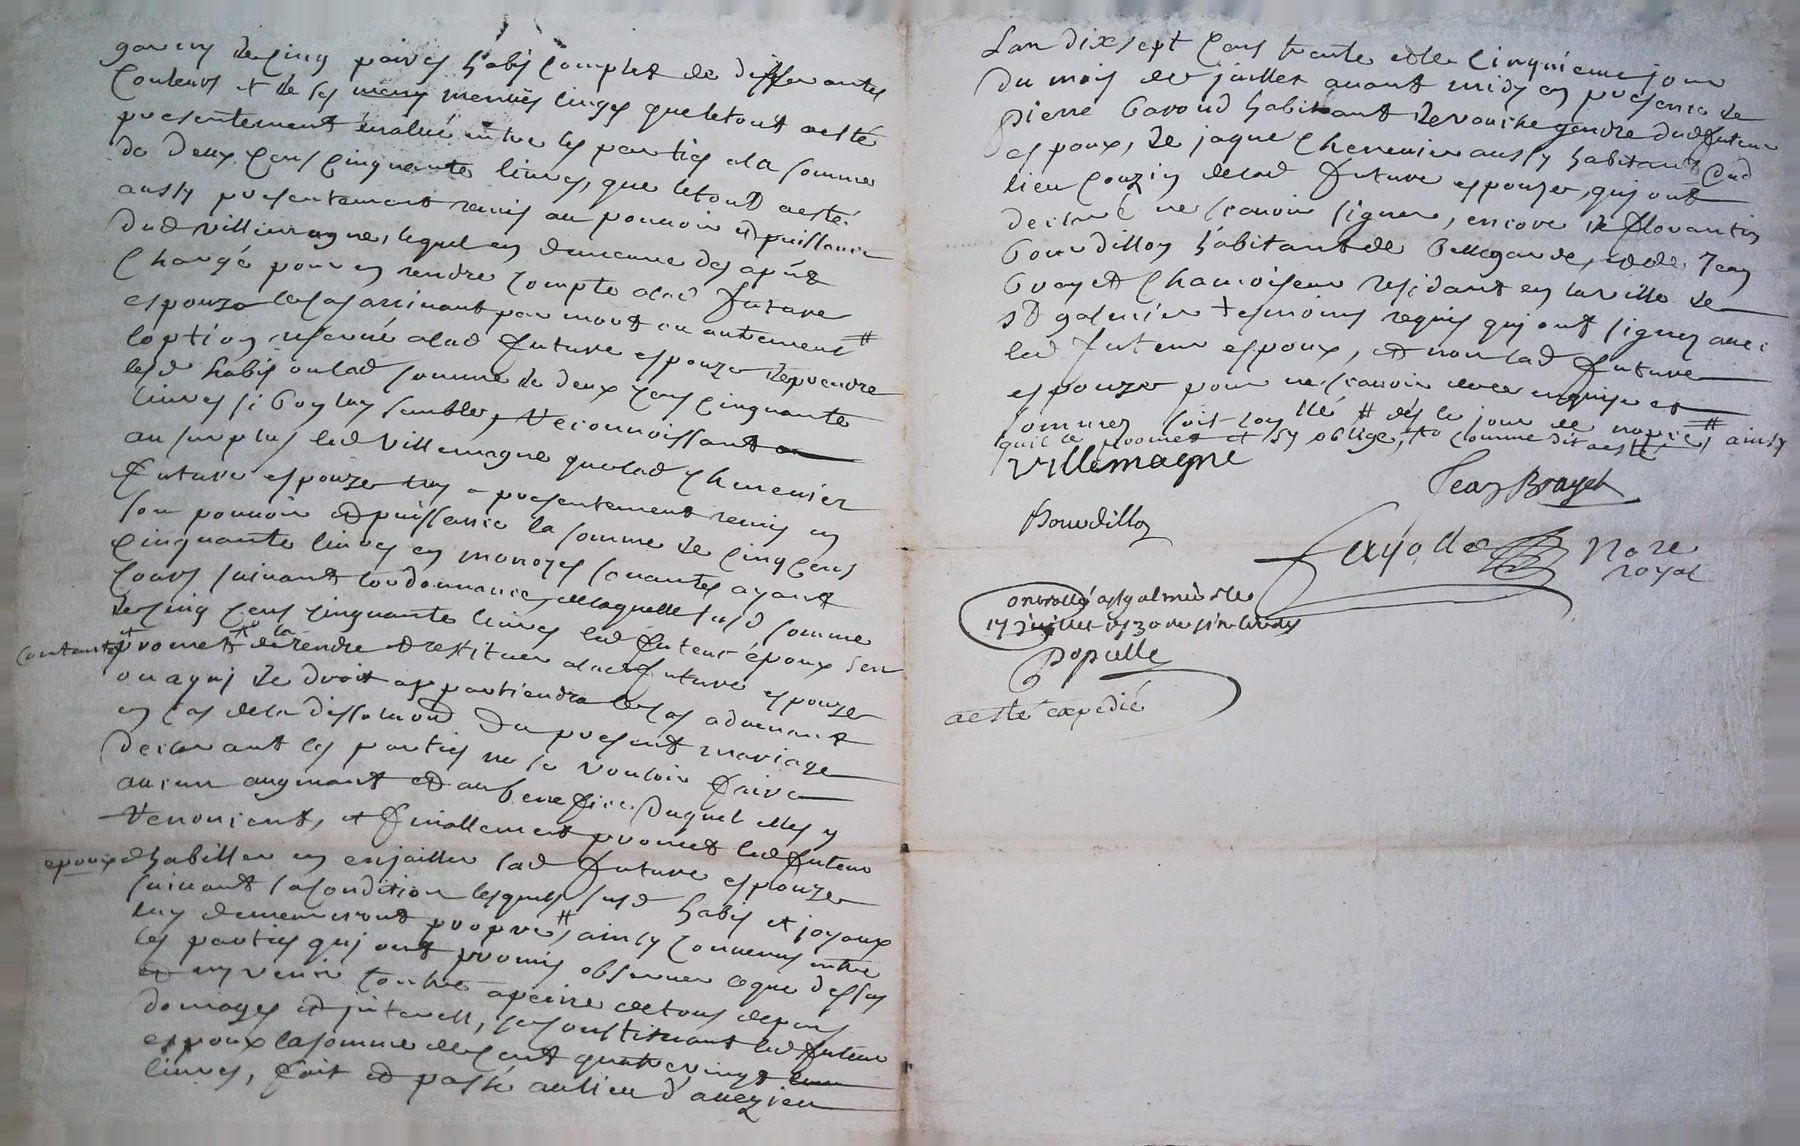 garny de cinq paires habis complet de differantes
couleurs et de ses menus linges que le tout a esté
presentement évalué entre les parties a la somme
de deux cens cinquante livres, que le tout a esté
aussy presentement remis au pouvoir et puissance
dud villemagne, lequel en demeure des apnt
chargé pour en rendre compte a lad future
espouze le cas arrivant par mort ou autrement #
loption reservée a lad future espouze de prendre
lesd habis ou lad somme de deux cens cinquante
livres si bon luy semble, Reconnoissant
au surplus led Villemagne que lad chenevier
future espouze luy a presentement remis en
son pouvoir et puissance la somme de cinq cens
cinquante livres en monoyes sonantes ayant
cours suivant lordonnance, de laquelle susd somme
de cinq cens cinquante livres led futeur époux sen
contante et promet de la rendre et restituer a lad future espouze
ou a qui de droit appartiendra le cas advenant
en cas de la dissolution du present mariage
declarant les parties ne se vouloir faire
aucun augmant et au benefice duquel elles y
Renoncent, et finallement promet led futeur
époux d'habiller en enjailler lad future espouze
suivant sa condition lesquels susd habis et joyaux
luy demeureront propre #, ainsy convenus entre
les parties qui ont promis observer ce que dessus
et ny venir contre a peine de tous depens
domages et interest, se constituant led futeur
espoux la somme de cent quatre vingt
livres, fait et passé au lieu d'avezieu
Lan dix sept cens trente et le cinquieme jour
du mois de juillet avant midy en presence de
pierre Gavoud habitant de gendre dud futeur
espoux, de jaque chenevier aussy habitant dud
lieu couzin de lad future espouze, qui ont
declaré ne scavoir signer, encore de florantin
bourdillon habitant de bellegarde, et de Jean
brayet chamoiseur residant en la ville de
st galmier tesmoins requis qui ont signez avec
led futeur espoux, et non lad future
espouze pour ne scavoir de ce enquise et
sommez soit controllé # dès le jour de nopces # ainsy
quil le promet et sy oblige, comme dit a esté
Villemagne
Jean Brayet
Bourdillon
fayolle Nore
royal
Controllé a st galmier le
17 juillet 1730
Populle
a esté expedié